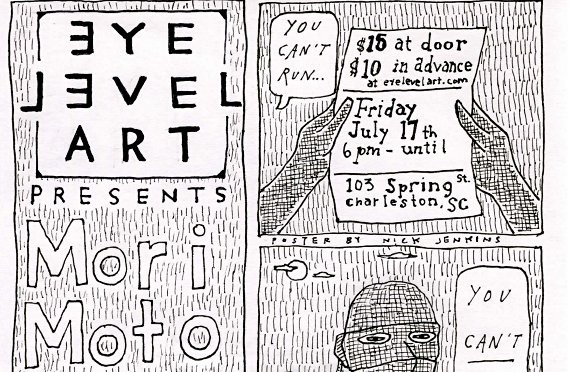 EYE
LEVEL
ART
PRESENTS
Mori
Moto
YOU
CAN'T
RUN...
$15 at door
$10 in advance
at eyelevelart.com
Friday
July 17th
6pm - until
103 Spring St.
charleston, SC
POSTER BY NICK JENKINS
YOU
CAN'T